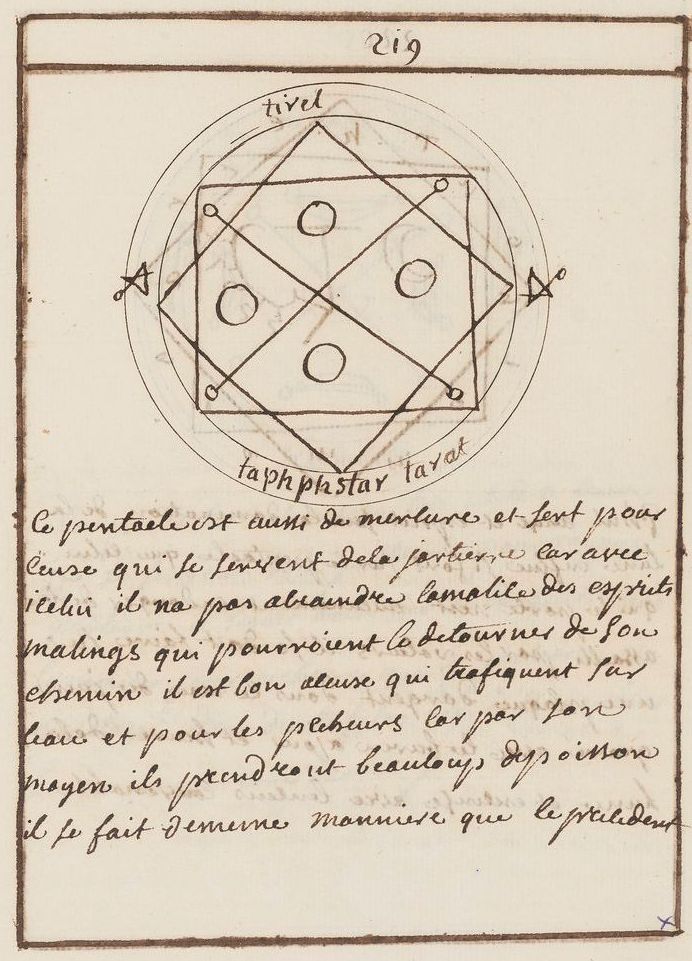 219
tirel
taphphstar tarat
Ce pentacle est aussi de mercure et sert pour
ceuse qui se servent dela jartierre car avec
icelui il na pas acraindre lamalice des esprits
malings qui pourroient le detourner de son
chemin il est bon aceuse qui trafiquent sur
leau et pour les pecheurs car par son
moyen ils prendront beaucoup depoisson
il se fait dememe manniere que le precedent